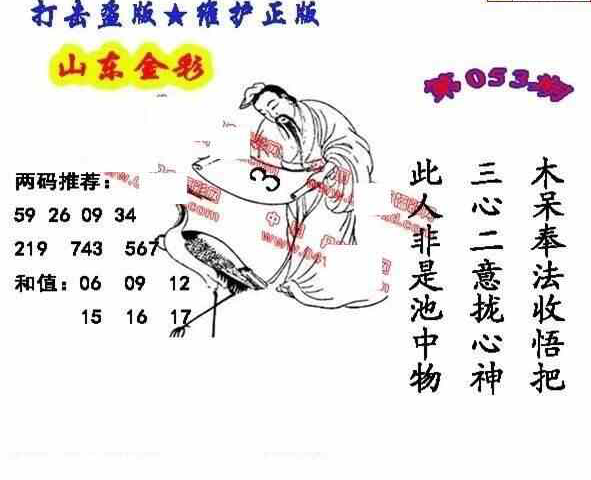 打击盗版★维护正版
山东金彩
第053期
两码推荐：
59 26 09 34
219 743 567
和值：06 09 12
15 16 17
3
木呆奉法收悟把
三心二意拢心神
此人非是池中物